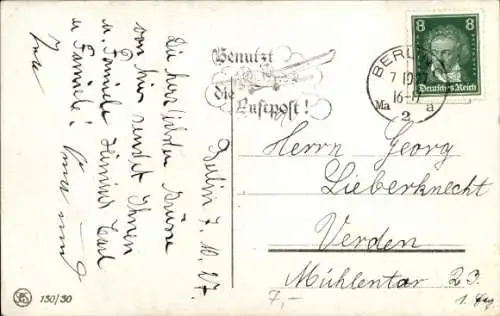 Berlin 7.10.27.
Die herzlichsten Grüsse
von hier sendet Ihnen
u. Familie
u Familie!
Benutzt
die Luftpost!
BERLIN
7.10.27
16-17
Ma a
2
8 8
Deutsches Reich
Herrn Georg
Lieberknecht
Verden
Mühlentor 23.
1. Etg
7,-
130/30